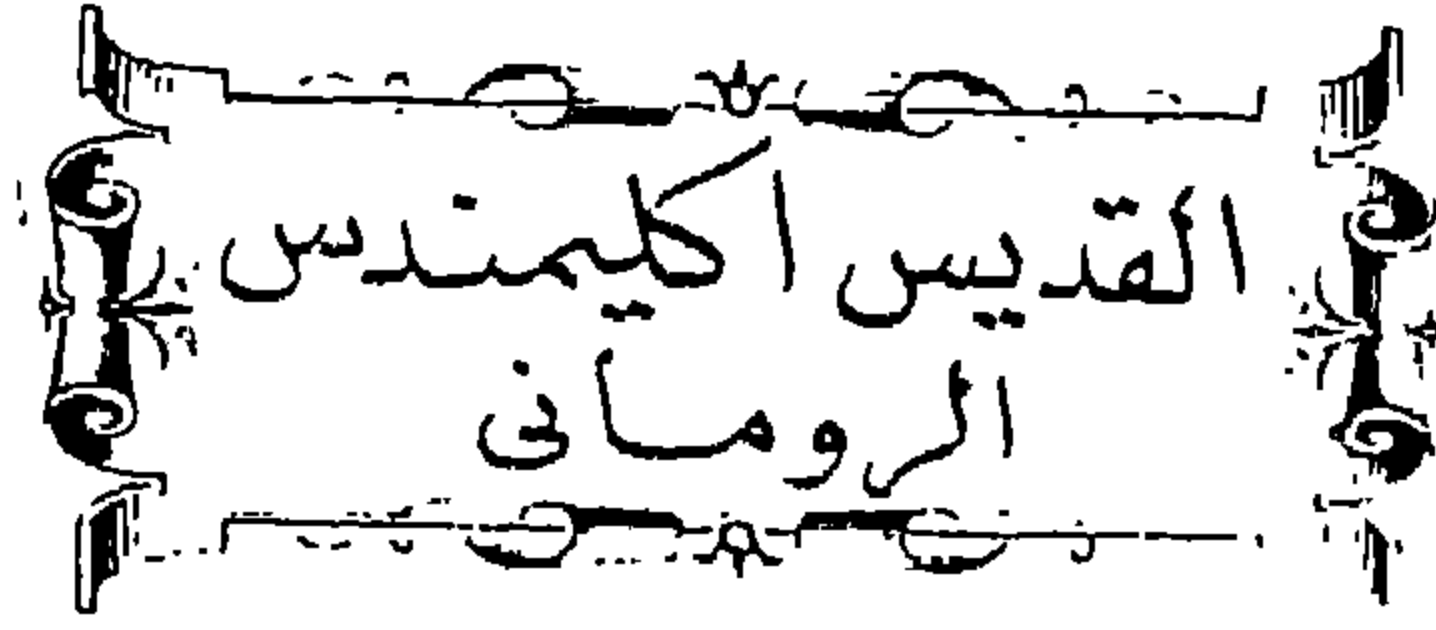 القديس اكليمندس
الرومانى